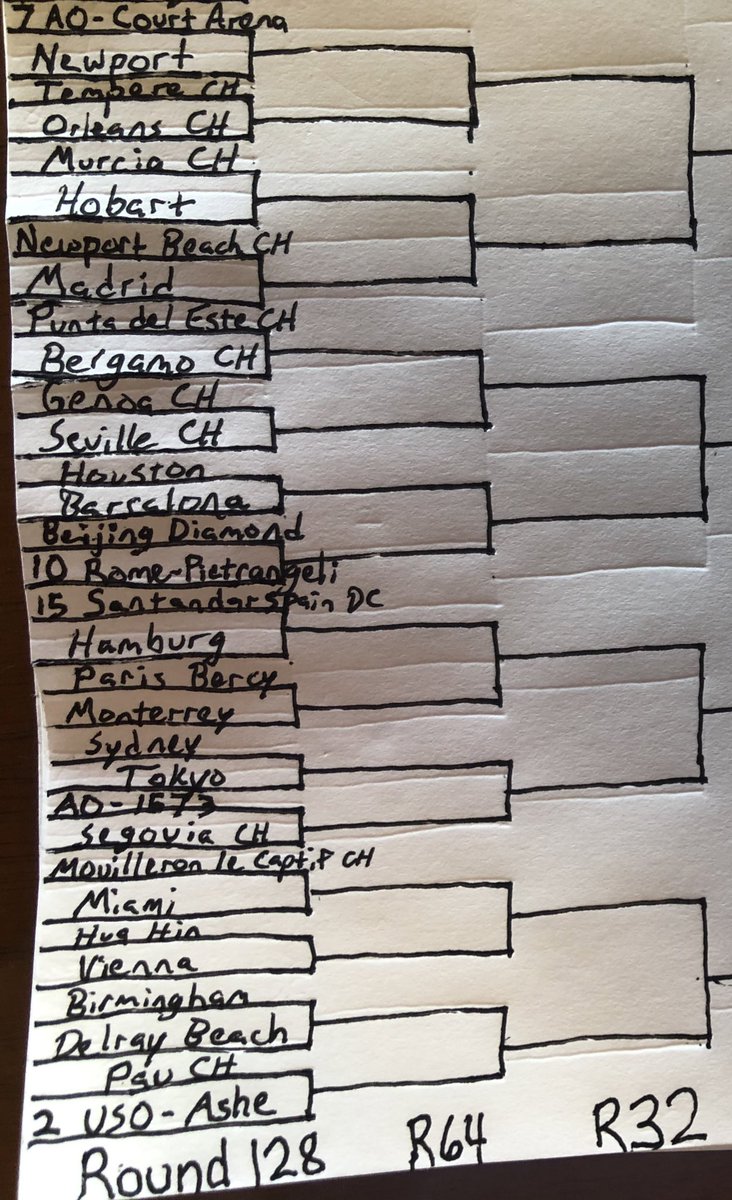 7 AO-Court Arena
Newport
Tempere CH
Orleans CH
Murcia CH
Hobart
Newport Beach CH
Madrid
Punta del Este CH
Bergamo CH
Genoa CH
Seville CH
Houston
Barcelona
Beijing Diamond
10 Rome-Pietrangeli
15 Santander Spain DC
Hamburg
Paris Bercy
Monterrey
Sydney
Tokyo
AO-1573
Segovia CH
Mouilleron le Captif CH
Miami
Hua Hin
Vienna
Birmingham
Delray Beach
Pau CH
2 USO-Ashe
Round 128 R64 R32